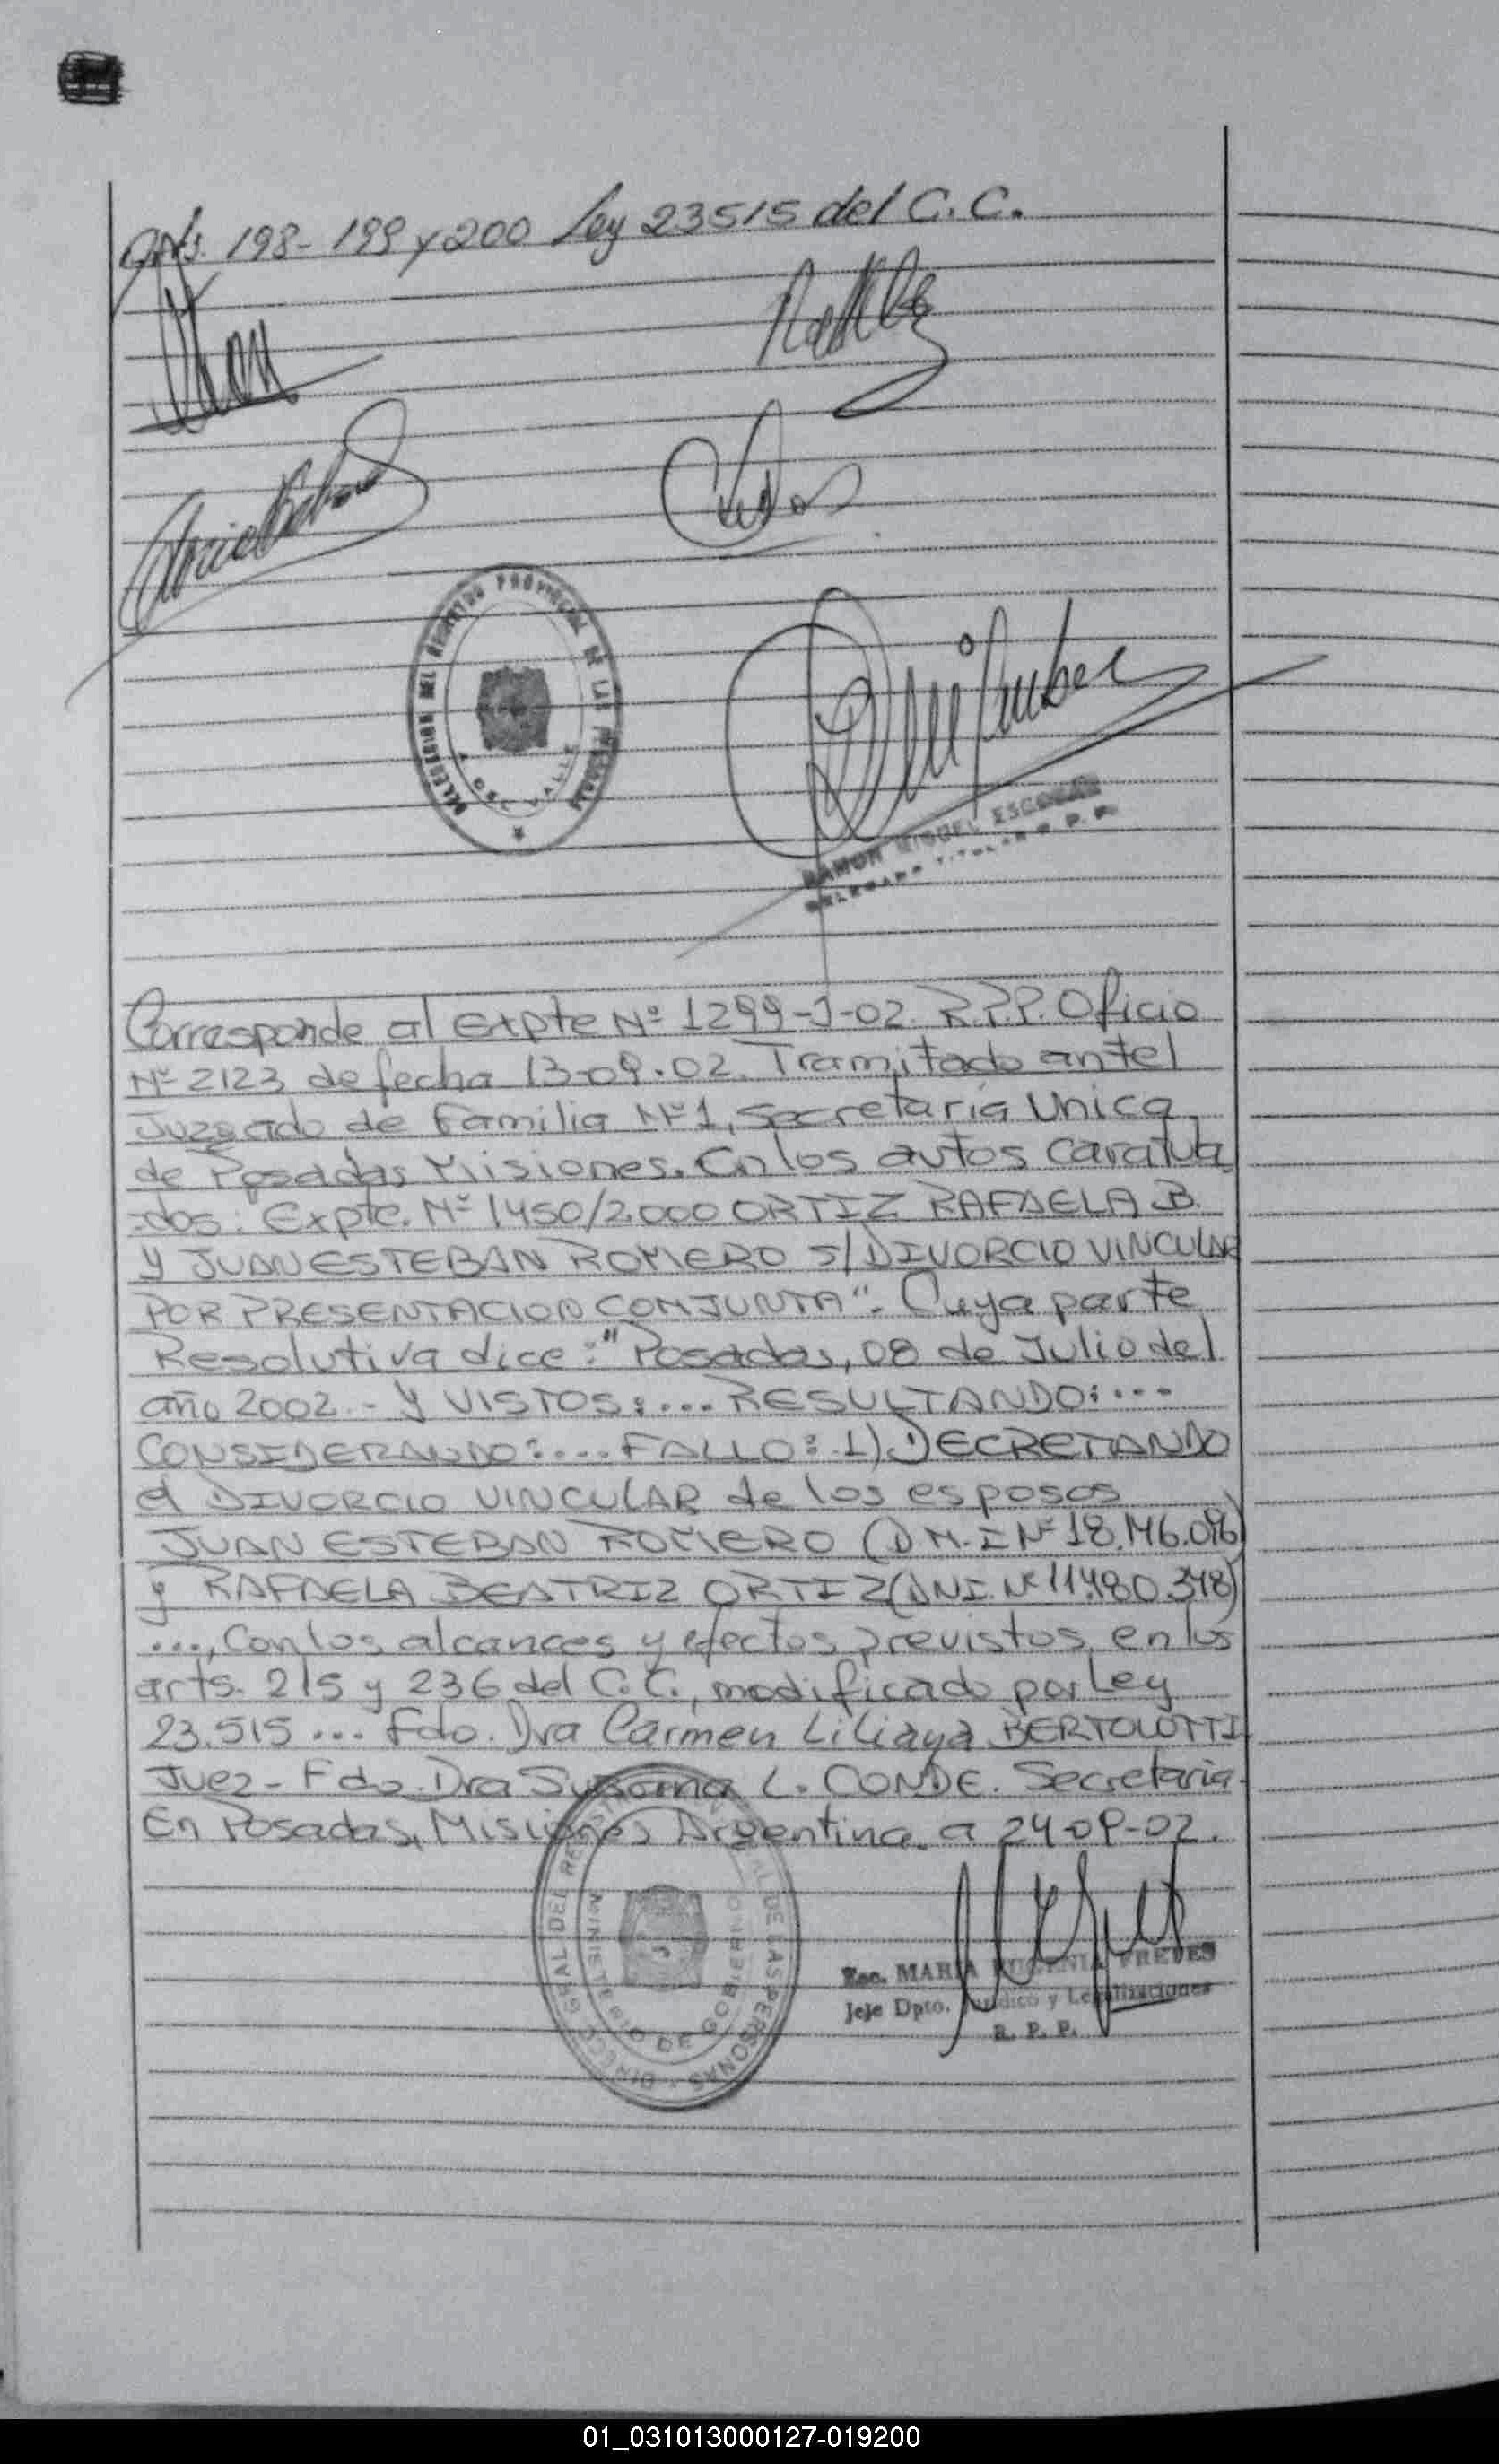 Arts. 198-199 y 200 Ley 23515 del C.C.
DELEGACION DEL REGISTRO PROVINCIAL DE LAS PERSONAS
A. DEL VALLE
RAMON MIGUEL ESCOBAR
DELEGADO TITULAR R. P. P.
Corresponde al Expte Nº 1299-J-02. R.P.P. Oficio
Nº 2123 de fecha 13-09-02. Tramitado antel
Juzgado de Familia Nº1, Secretaría Unica,
de Posadas Misiones. En los autos caratula
-dos: Expte. Nº 1450/2.000 ORTIZ RAFAELA B.
y JUAN ESTEBAN ROMERO S/ DIVORCIO VINCULAR
POR PRESENTACION CONJUNTA". Cuya parte
Resolutiva dice: "Posadas, 08 de Julio del
año 2002.- Y VISTOS:... RESULTANDO:...
CONSIDERANDO:... FALLO: 1) DECRETANDO
el DIVORCIO VINCULAR de los esposos
JUAN ESTEBAN ROMERO (D.N.I Nº
y RAFAELA BEATRIZ ORTIZ (DNI. Nº 11.480.348)
..., Con los alcances y efectos previstos en los
arts. 215 y 236 del C.C., modificado por Ley
23.515 ... Fdo. Dra Carmen Liliana BERTOLOTTI
Juez - Fdo. Dra Susana L. CONDE. Secretaria.
En Posadas, Misiones Argentina. a 24-09-02.
DIRECC. GRAL DEL REGISTRO PROVINCIAL DE LAS PERSONAS
MINISTERIO DE GOBIERNO
Esc. MARIA EUGENIA
Jefe Dpto. Jurídico y Legalizaciones
R. P. P.
01_031013000127-019200